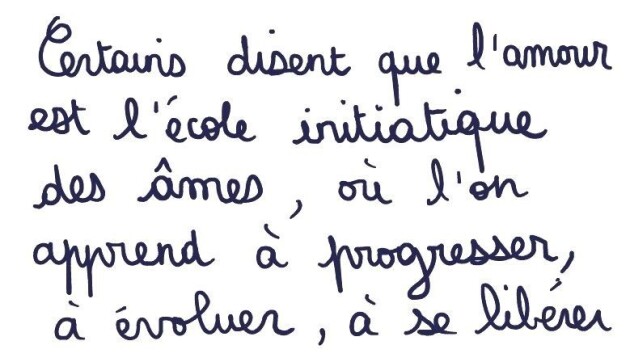 Certains disent que l'amour
est l'école initiatique
des âmes, où l'on
apprend à progresser,
à évoluer, à se libérer